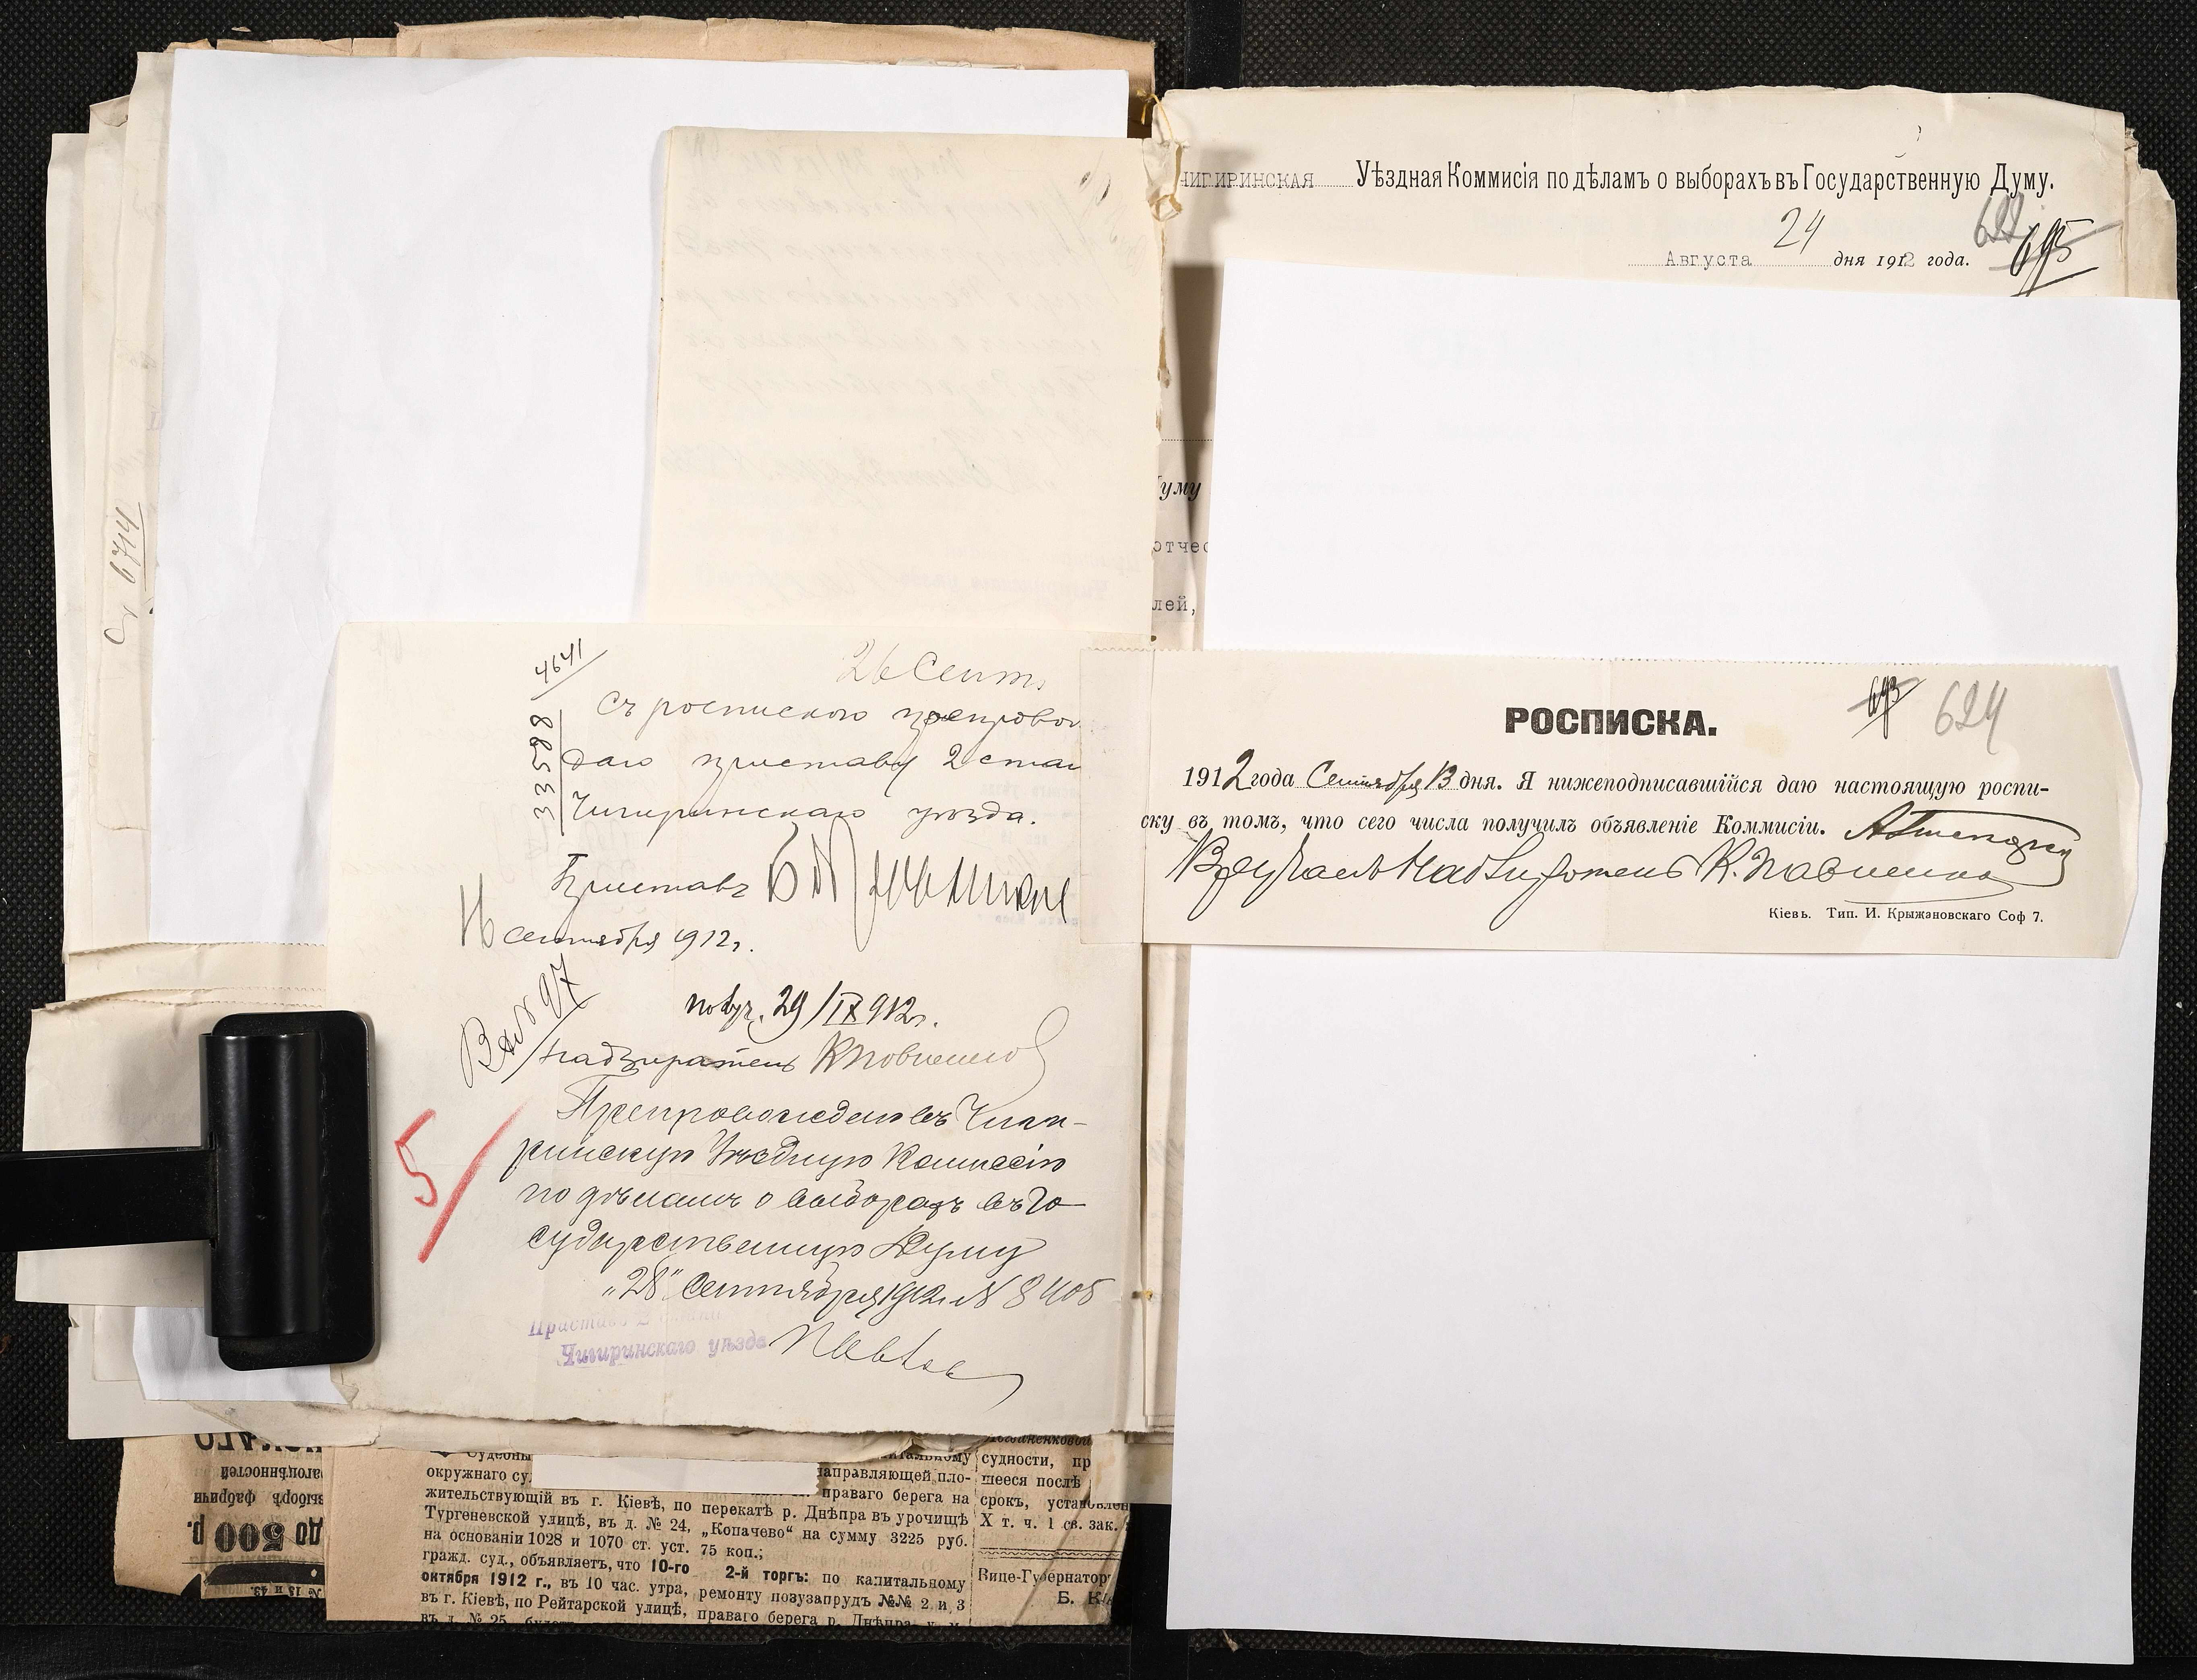 № 6714
4641
33598
26 Сент.
Съ роспискою препровож
даю приставу 2 стан
Чигиринскаго уѣзда.
Приставъ
16 сентября 1912 г.
Вх № 97
получ. 29/IX 912 г.
Надзиратель
5/
Препровождаю въ Чиги-
ринскую Уѣздную Коммиссію
по дѣламъ о выборахъ въ Го-
сударственную Думу
„28" Сентября 1912 г. № 8405
Приставъ 2 стана
Чигиринскаго уѣзда
ЧИГИРИНСКАЯ Уѣздная Коммисія по дѣламъ о выборахъ въ Государственную Думу.
622 695
Августа 24 дня 1912 года.
уму
отчес
лей,
РОСПИСКА.
693 624
1912 года Сентября 13 дня. Я нижеподписавшійся даю настоящую роспи-
ску въ томъ, что сего числа получилъ объявленіе Коммисіи.
Вручалъ Надзиратель К.
Кіевъ. Тип. И. Крыжановскаго Соф 7.
Судебны
окружнаго су
жительствующій въ г. Кіевѣ, по
Тургеневской улицѣ, въ д. № 24,
на основаніи 1028 и 1070 ст. уст.
гражд. суд., объявляетъ, что 10-го
октября 1912 г., въ 10 час. утра,
въ г. Кіевѣ, по Рейтарской улицѣ,
въ д. № 25, будетъ
итальному
направляющей пло-
праваго берега на
перекатѣ р. Днѣпра въ урочищѣ
„Копачево" на сумму 3225 руб.
75 коп.;
2-й торгъ: по капитальному
ремонту позузапрудъ №№ 2 и 3
праваго берега р. Днѣпра у м.
судности, пр
шееся послѣ
срокъ, установлен
X т. ч. 1 св. зак.
Вице-Губернатор
Б. К
до 500 р.
выборъ фабричн
рагоцѣнностей
№ 13 и 43.